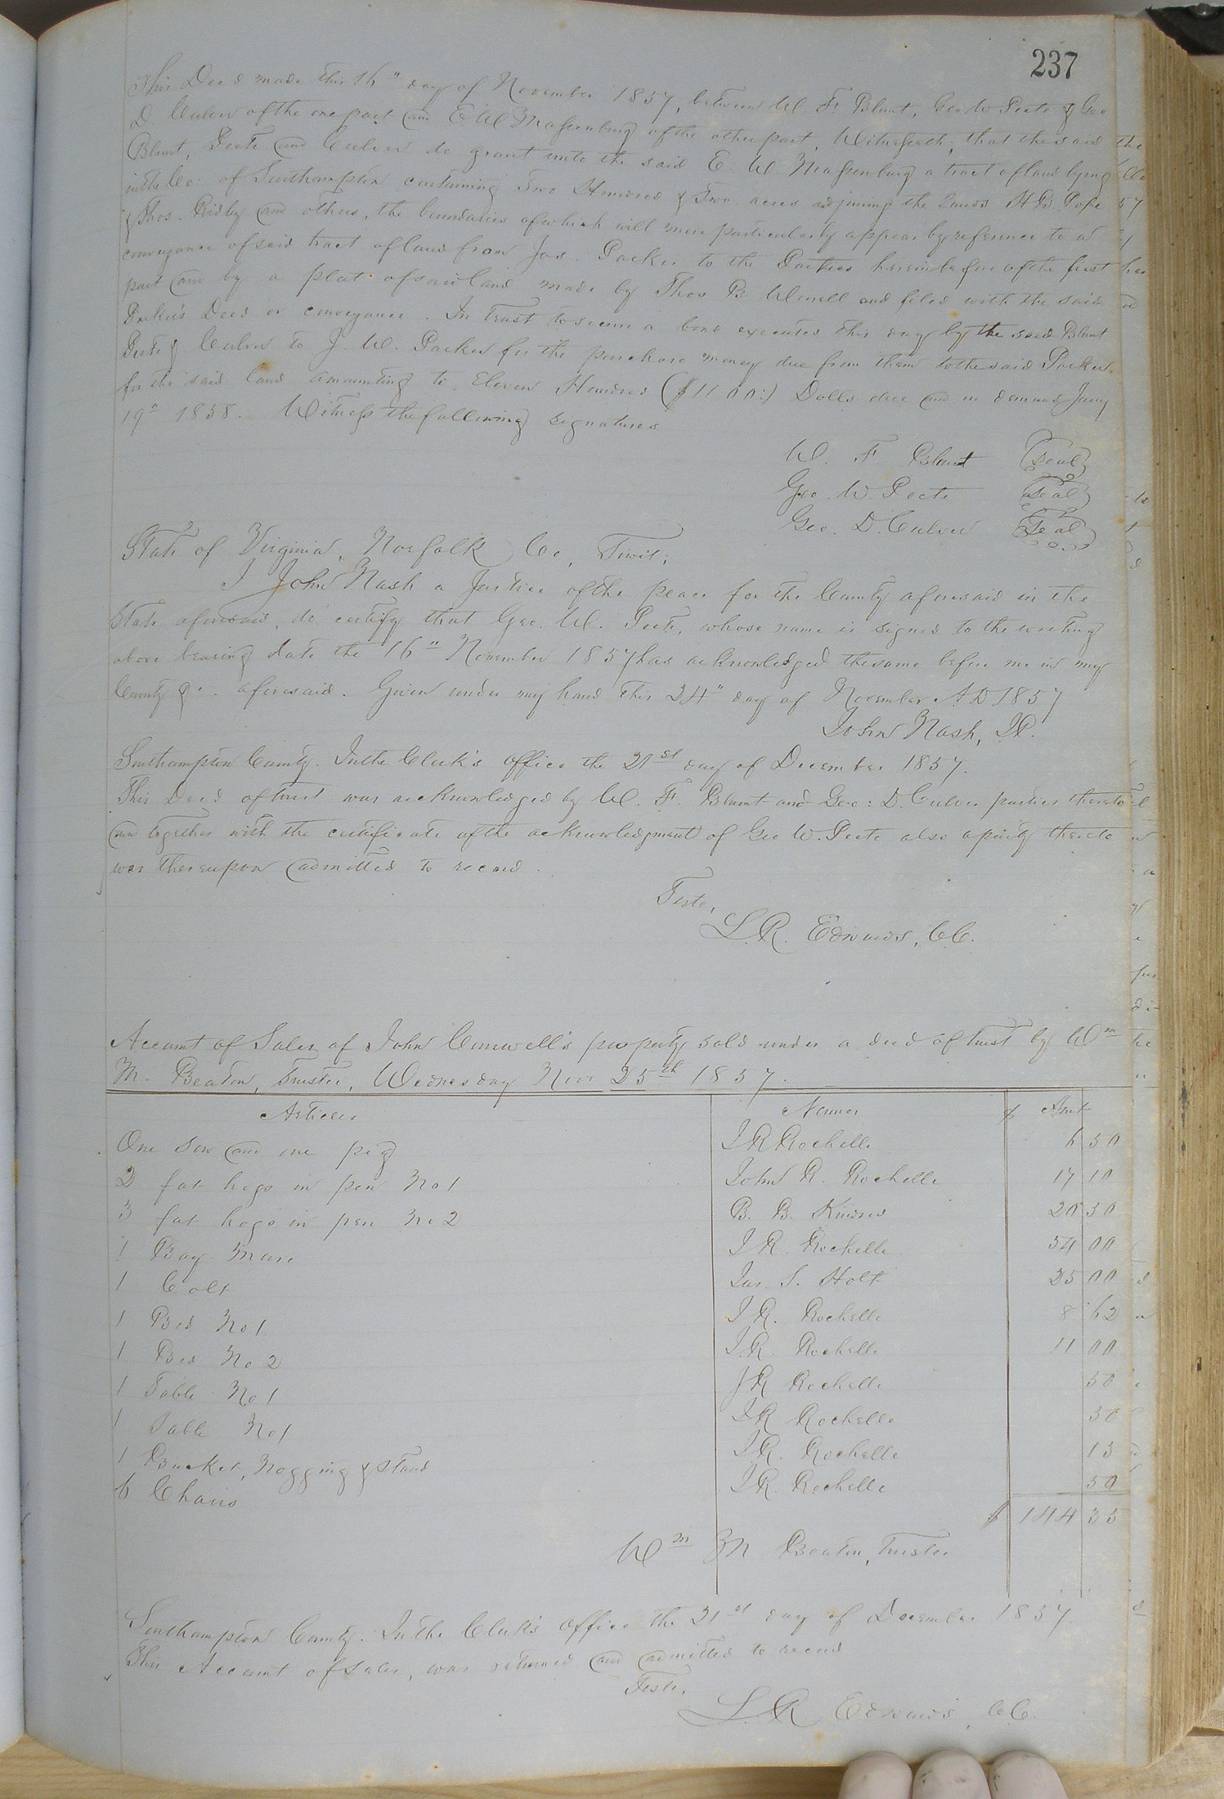 237
This Deed made this 16" day of November 1857, between W. F. Blunt, Geo W Peete & Geo
D Culver of the one part and E W Massenburg of the other part, Witnesseth, that the said
Blunt, Peete and Culver do grant unto the said E. W. Massenburg a tract of land lying
in the Co. of Southampton containing Two Hundred & Two acres adjoining the lands H B. Pope
& Thos. Ridley and others, the boundaries of which will more particularly appear by reference to a
conveyance of said tract of land from Jas. Parker to the Parties hereinbefore of the first
part and by a plat of said land made by Thos B. and filed with the said
Parker's Deed or conveyance. In trust to secure a bond executed this day by the said Blunt
Peete & Culver to J. W. Parker for the purchase money due from them to the said Parker
for the said land amounting to Eleven Hundred ($1100:) Dolls due and on demand Jany
19" 1858. Witness the following signatures
W. F Blunt (Seal)
Geo. W. Peete (Seal)
Geo. D. Culver (Seal)
State of Virginia, Norfolk Co, Towit;
I John Nash a Justice of the peace for the County aforesaid in the
State aforesaid, do certify that Geo. W. Peete, whose name is signed to the writing
above bearing date the 16" November 1857 has acknowledged the same before me in my
County &c. aforesaid. Given under my hand this 24" day of November A.D 1857
John Nash, J.P.
Southampton County. In the Clerk's Office the 21st day of December 1857.
This Deed of trust was acknowledged by W. F. Blunt and Geo: D. Culver parties thereto
and together with the certificate of the acknowledgment of Geo W. Peete also a party thereto
was thereupon admitted to record.
Teste,
L. R. Edwards, C.C.
Account of Sales of John Crumwell's property sold under a deed of trust by Wm
M. Beaton, Trustee, Wednesday Novr 25th 1857.
Articles Names $ Amt
One sow and one pig J R Rochelle 6 50
2 fat hogs in pen No 1 John R. Rochelle 17 10
3 fat hogs in pen No 2 B. B. 20 50
1 Bay Mare J R. Rochelle 54 00
1 Colt Jas. S. Holt 25 00
1 Bed No 1 J R. Rochelle 8 62
1 Bed No 2 J R. Rochelle 11 00
1 Table No 1 J R Rochelle 50
1 Table No 1 J R Rochelle 50
1 Bucket, Nogging & Stand J R. Rochelle 13
6 Chairs J R. Rochelle 50
$ 144 35
Wm M Beaton, Trustee
Southampton County. In the Clerk's Office the 21st day of December 1857
This Account of Sales, was returned and admitted to record
Teste,
L. R Edwards, C.C.